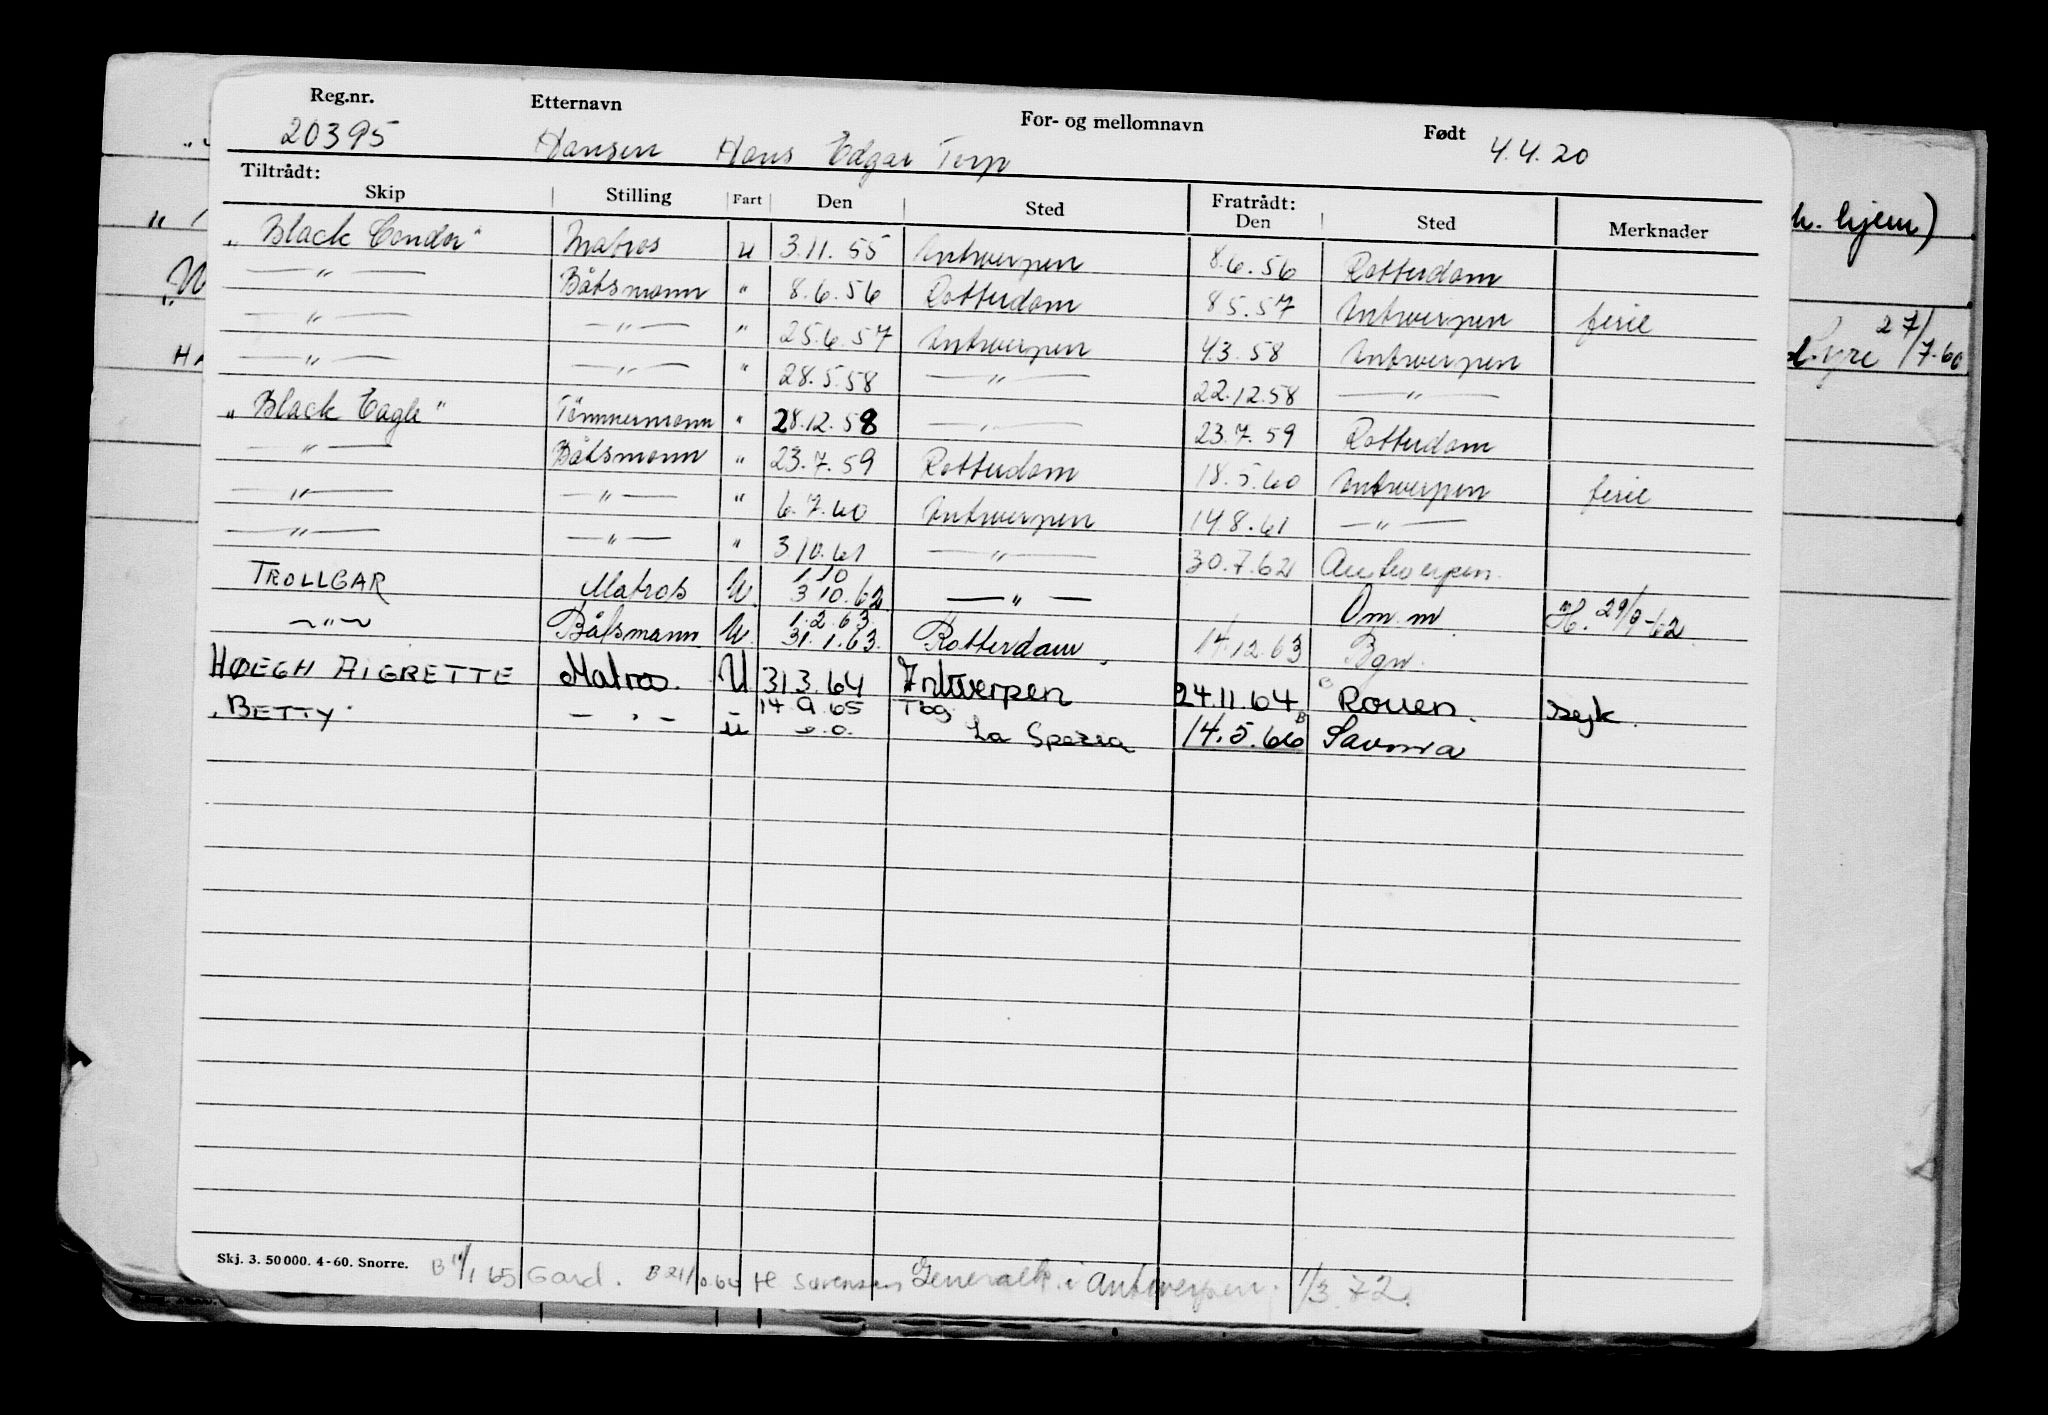 Reg.nr. Etternavn For- og mellomnavn Født
20395 Hansen Hans Edgar Torp 4.4.20
Tiltrådt: Fratrådt:
Skip Stilling Fart Den Sted Den Sted Merknader
„Black Condor" Matros u 3.11.55 Antwerpen 8.6.56 Rotterdam
—"— Båtsmann " 8.6.56 Rotterdam 8.5.57 Antwerpen ferie
—"— —"— " 25.6.57 Antwerpen 4.3.58 Antwerpen
—"— —"— " 28.5.58 —"— 22.12.58 —"—
„Black Eagle" Tömmermann " 28.12.58 —"— 23.7.59 Rotterdam
—"— Båtsmann " 23.7.59 Rotterdam 18.5.60 Antwerpen ferie
—"— —"— " 6.7.60 Antwerpen 14.8.61 —"—
—"— —"— " 3.10.61 —"— 30.7.62 Antwerpen.
1.10
TROLLGAR Matros U. 3 10.62 —"— Om.m H. 29/9-62
1.2.63.
—"— Båtsmann. U. 31.1.63. Rotterdam. 14.12.63 Bgn.
HØEGH AIGRETTE Matros. U 31.3.64 Antwerpen 24.11.64 B Rouen. syk.
„BETTY" — " — u 14.9.65 Tbg.
o.o. La Spezia 14.5.66 B Savona
h. hjem)
27/7.60
Skj. 3. 50000. 4-60. Snorre. B 11/1 65 Gard. B 21/10 64 H Sørensen Generalk. i Antwerpen. 1/3.72.